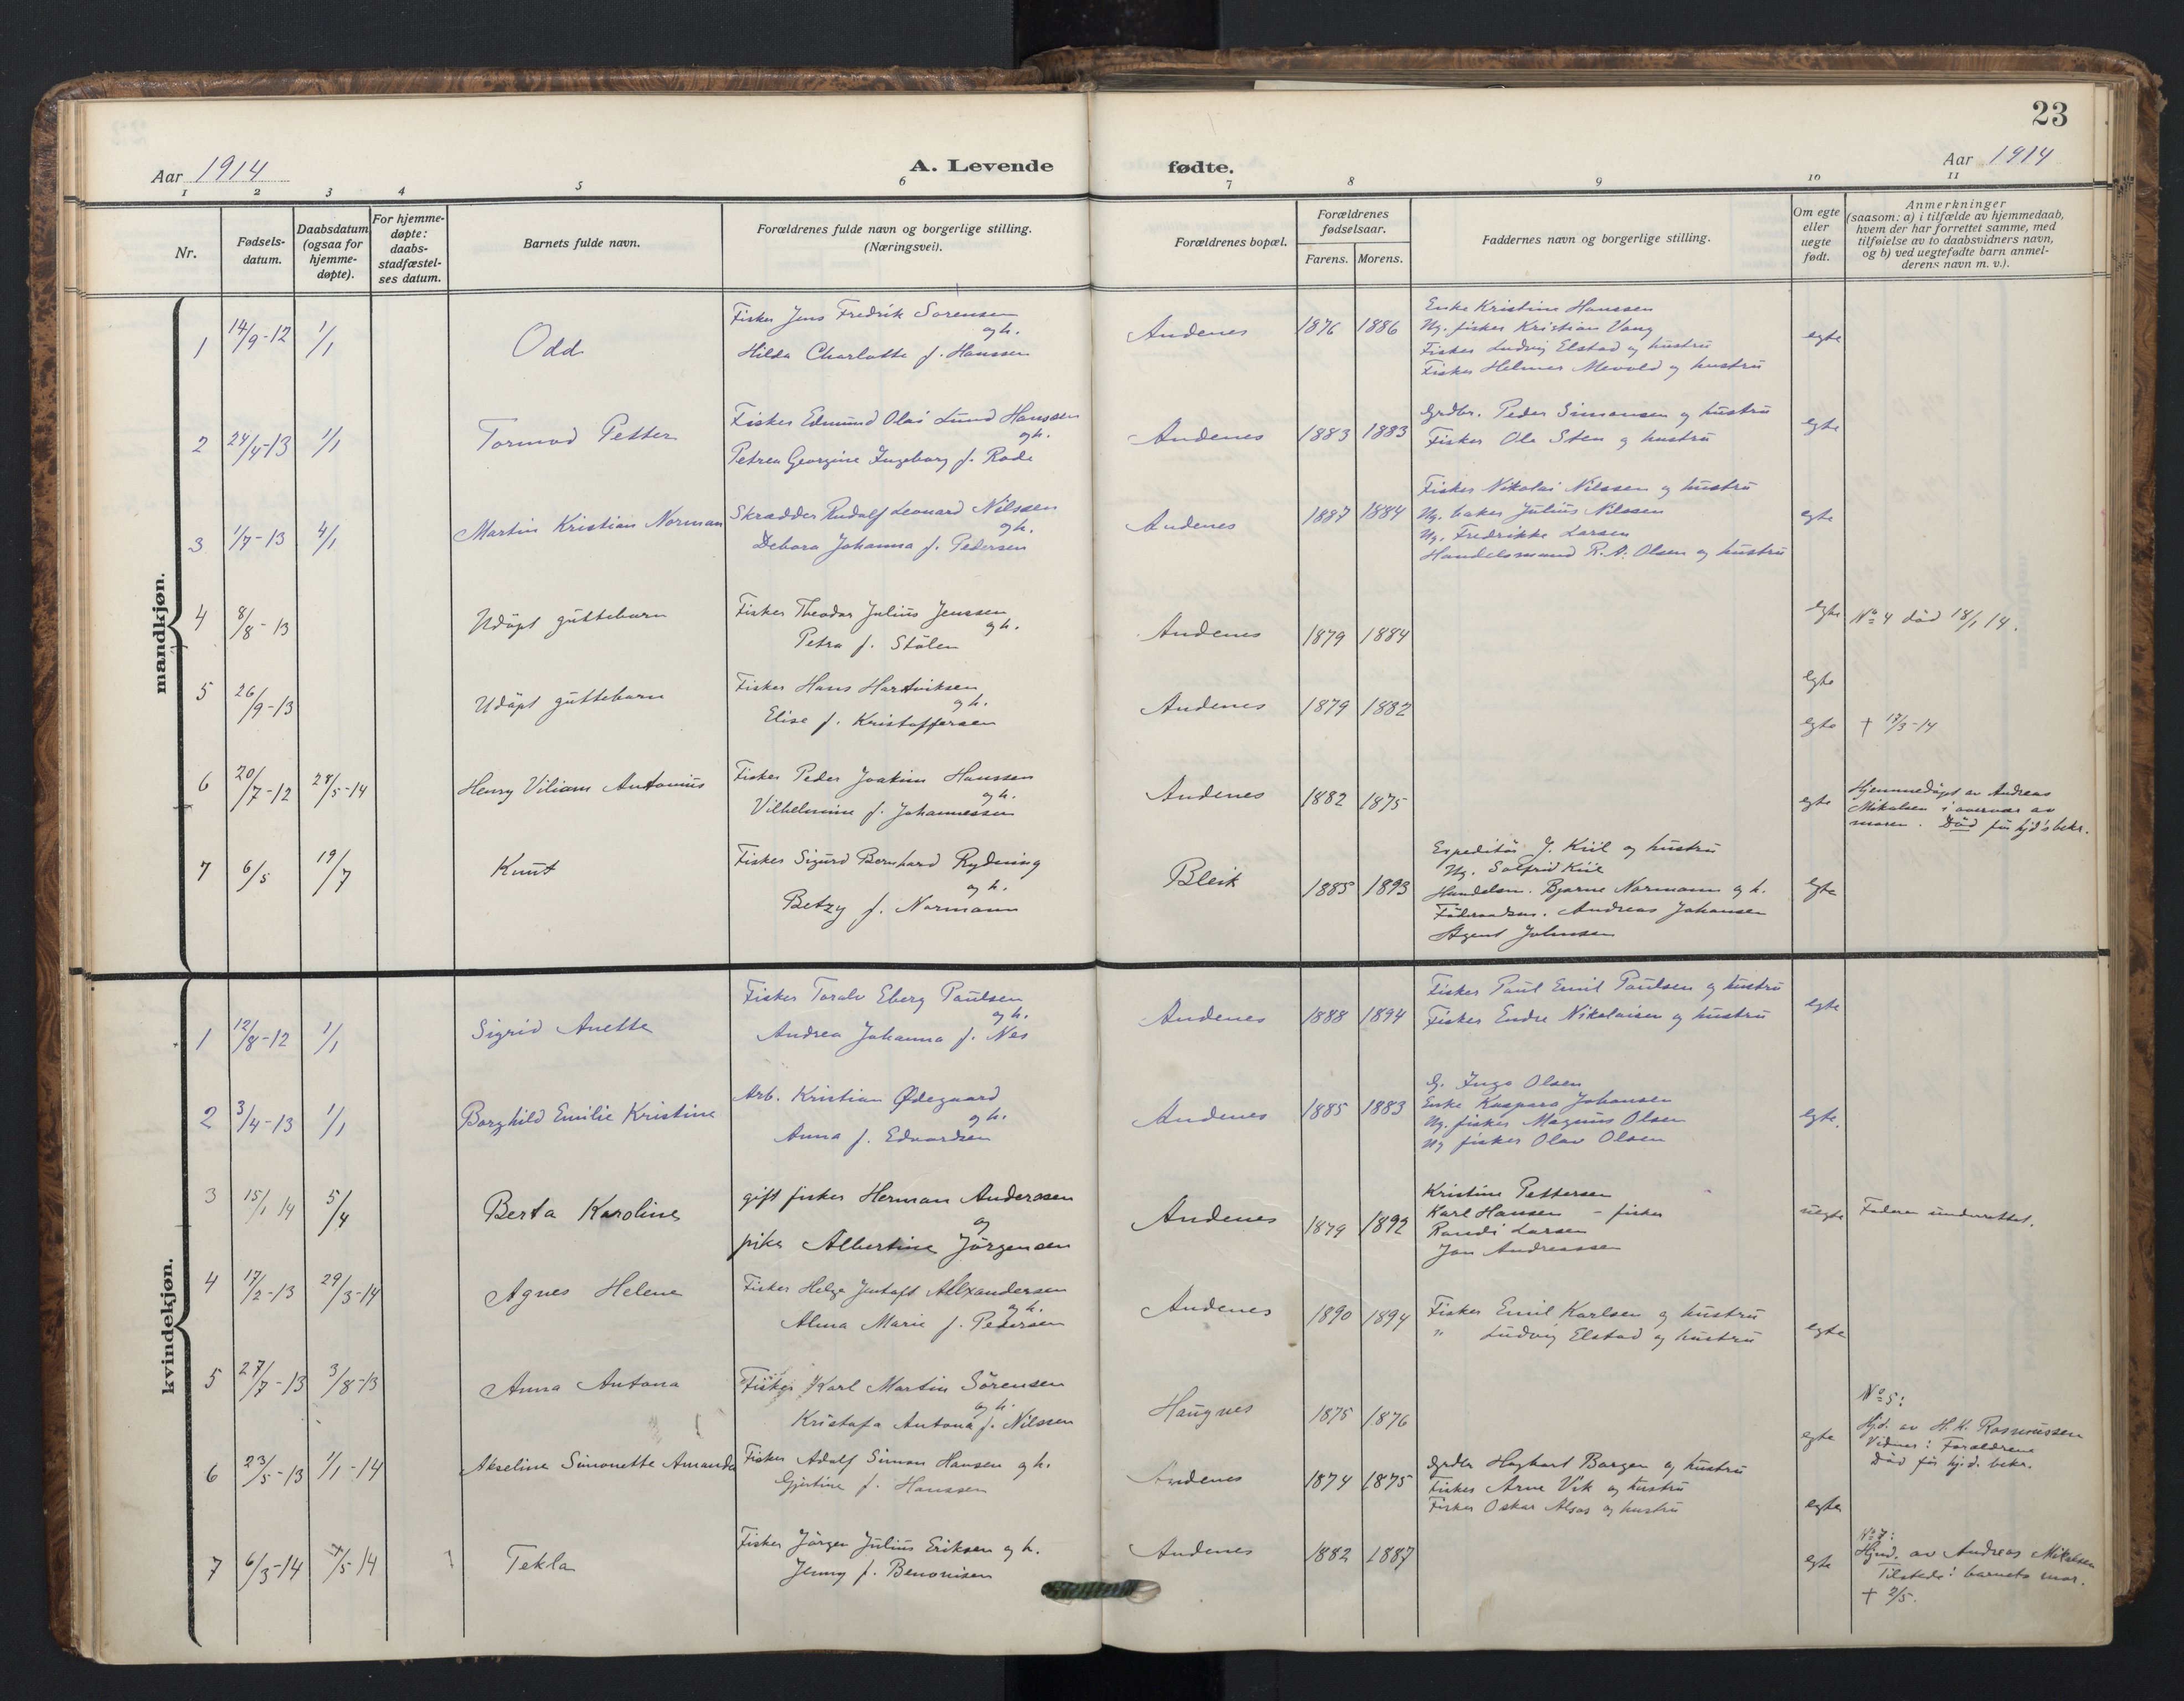 23
Aar 1914
A. Levende fødte.
Aar 1914
1 2 3 4 5 6 7 8 9 10 11
Nr.
Fødsels-datum.
Daabsdatum (ogsaa for hjemme-døpte).
For hjemme-døpte: daabs-stadfæstel-ses datum.
Barnets fulde navn.
Forældrenes fulde navn og borgerlige stilling. (Næringsvei).
Forældrenes bopæl.
Forældrenes fødselsaar.
Farens. Morens.
Faddernes navn og borgerlige stilling.
Om egte eller uegte født.
Anmerkninger
(saasom: a) i tilfælde av hjemmedaab,
hvem der har forrettet samme, med
tilføielse av to daabsvidners navn,
og b) ved uegtefødte barn anmel-
derens navn m. v.).
mandkjøn.
1 14/9-12 1/1 Odd
Fisker Jens Fredrik Sorensen
og h.
Hilda Charlotte f. Hanssen
Andenes 1876 1886
Enke Kristine Hanssen
Ug. fisker Kristian Vang
Fisker Ludvig Elstad og hustru
Fisker Helmer Mevold og hustru
egte
2 24/4-13 1/1 Tormod Petter
Fisker Edmund Olai Lund Hanssen
og h.
Petrea Georgine Ingeborg f. Rode
Andenes 1883 1883
Grdbr. Peder Simonsen og hustru
Fisker Ole Sten og hustru
egte
3 1/7-13 4/1 Martin Kristian Norman
Skrædder Rudolf Leonard Nilssen
og h.
Debora Johanna f. Pedersen
Andenes 1887 1884
Fisker Nikolai Nilssen og hustru
Ug. baker Julius Nilssen
Ug. Fredrikke Larsen
Handelsmand R. A. Olsen og hustru
egte
4 8/8-13 Udøpt guttebarn
Fisker Theodor Julius Jenssen
og h.
Petra f. Stölen
Andenes 1879 1884
egte
No 4 död 18/1 14.
5 26/9-13 Udöpt guttebarn
Fisker Hans Hartviksen
og h.
Elise f. Kristoffersen
Andenes 1879 1882
egte
egte
† 17/3-14
6 20/7-12 24/5-14 Henry Viliam Antonius
Fisker Peder Joakim Hanssen
og h.
Vilhelmine f. Johannessen
Andenes 1882 1875
egte
Hjemmedöpt av Andreas
Mikalsen i overvær av
moren. Död för hjd's bekr.
7 6/5 19/7 Knut
Fisker Sigurd Bernhard Rydning
og h.
Betzy f. Normann
Bleik 1885 1893
Expeditör J. Kiil og hustru
Ug. Solfrid Kiil
Handelsm. Bjarne Normann og h.
Föderaadsm. Andreas Johansen
Agent Johnsen
egte
kvindekjøn.
1 12/8-12 1/1 Sigrid Anette
Fisker Toralv Eberg Paulsen
og h.
Andrea Johanna f. Nes
Andenes 1888 1894
Fisker Paul Emil Paulsen og hustru
Fisker Endre Nikolaisen og hustru
egte
2 3/4-13 1/1 Borghild Emilie Kristine
Arb. Kristian Ødegaard
og h.
Anna f. Edvardsen
Andenes 1885 1883
G. Inga Olsen
Enke Kaspara Johansen
Ug. fisker Magnus Olsen
Ug fisker Olav Olsen
egte.
3 15/1 14 5/4 Berta Karoline
gift fisker Herman Anderssen
og
pike Albertine Jörgensen
Andenes 1879 1892
Kristine Pettersen
Karl Hansen - fisker
Randi Larsen
Jan Andreassen
uegte
Faderen underrettet.
4 17/2-13 29/3-14 Agnes Helene
Fisker Helge Gustaft Alexandersen
og h.
Alma Marie f. Pedersen
Andenes 1890 1894
Fisker Emil Karlsen og hustru
" Ludvig Elstad og hustru
egte
5 27/7-13 3/8-13 Anna Antona
Fisker Karl Martin Sörensen
og h.
Kristofa Antona f. Nilssen
Haugnes 1875 1876
egte
No 5:
Hjd. av H. K. Rasmussen
Vidner: Forældrene
Död för hj.d. bekr.
6 23/5-13 1/1-14 Akseline Simonette Amanda
Fisker Adolf Simon Hansen og h.
Gjertine f. Hanssen
Andenes 1874 1875
Grdbr Haghart Borgen og hustru
Fisker Arne Vik og hustru
Fisker Oskar Alsos og hustru
egte
7 6/3-14 4/5-14 Tekla
Fisker Jörgen Julius Eriksen og h.
Jenny f. Benonisen
Andenes 1882 1887
egte
No 7:
Hjmd. av Andreas Mikalsen
Tilstede: barnets mor.
† 2/5.